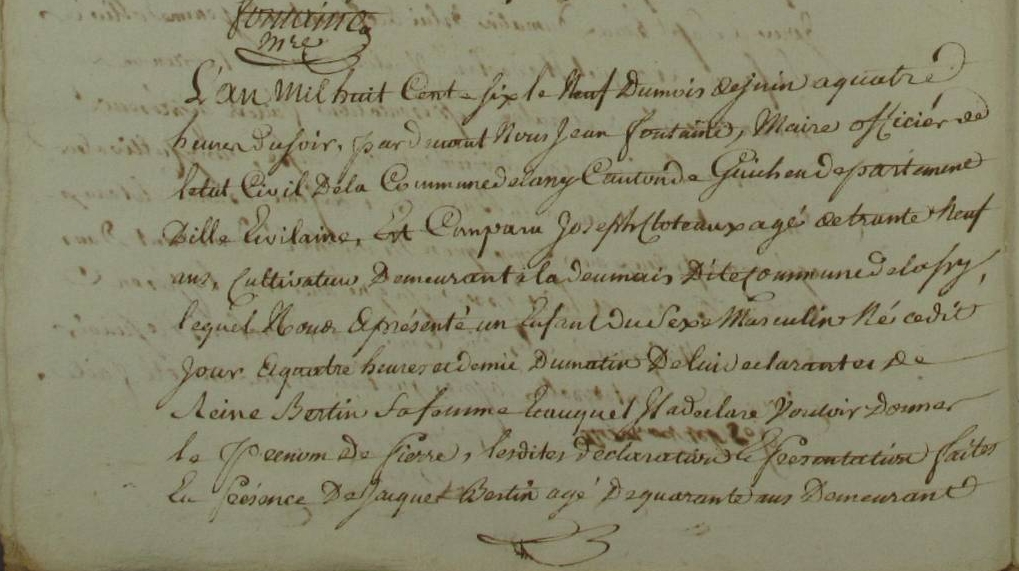 fontaine
mre
L'an Mil huit Cent six le Neuf Dumois dejuin a quatre
heures dusoir, pardevant Nous Jean fontaine, Maire officier de
letat Civil Dela Commune de Canton de Guichen departement
Dille Evilaine, Est Comparu Joseph Cloteaux agé de trante Neuf
ans, Cultivateur Demeurant a la Dite Commune de
lequel Nous a présenté un Enfant du Sexe Masculin Né cedit
Jour a quatre heures et demie Dumatin Delui declarant et de
Reine Bertin Safemme Eauquel Il a declaré Vouloir Donner
le Prenom De Pierre, lesdites déclaration Et Présentation faites
En Présence De Jacques Bertin agé De quarante ans Demeurant